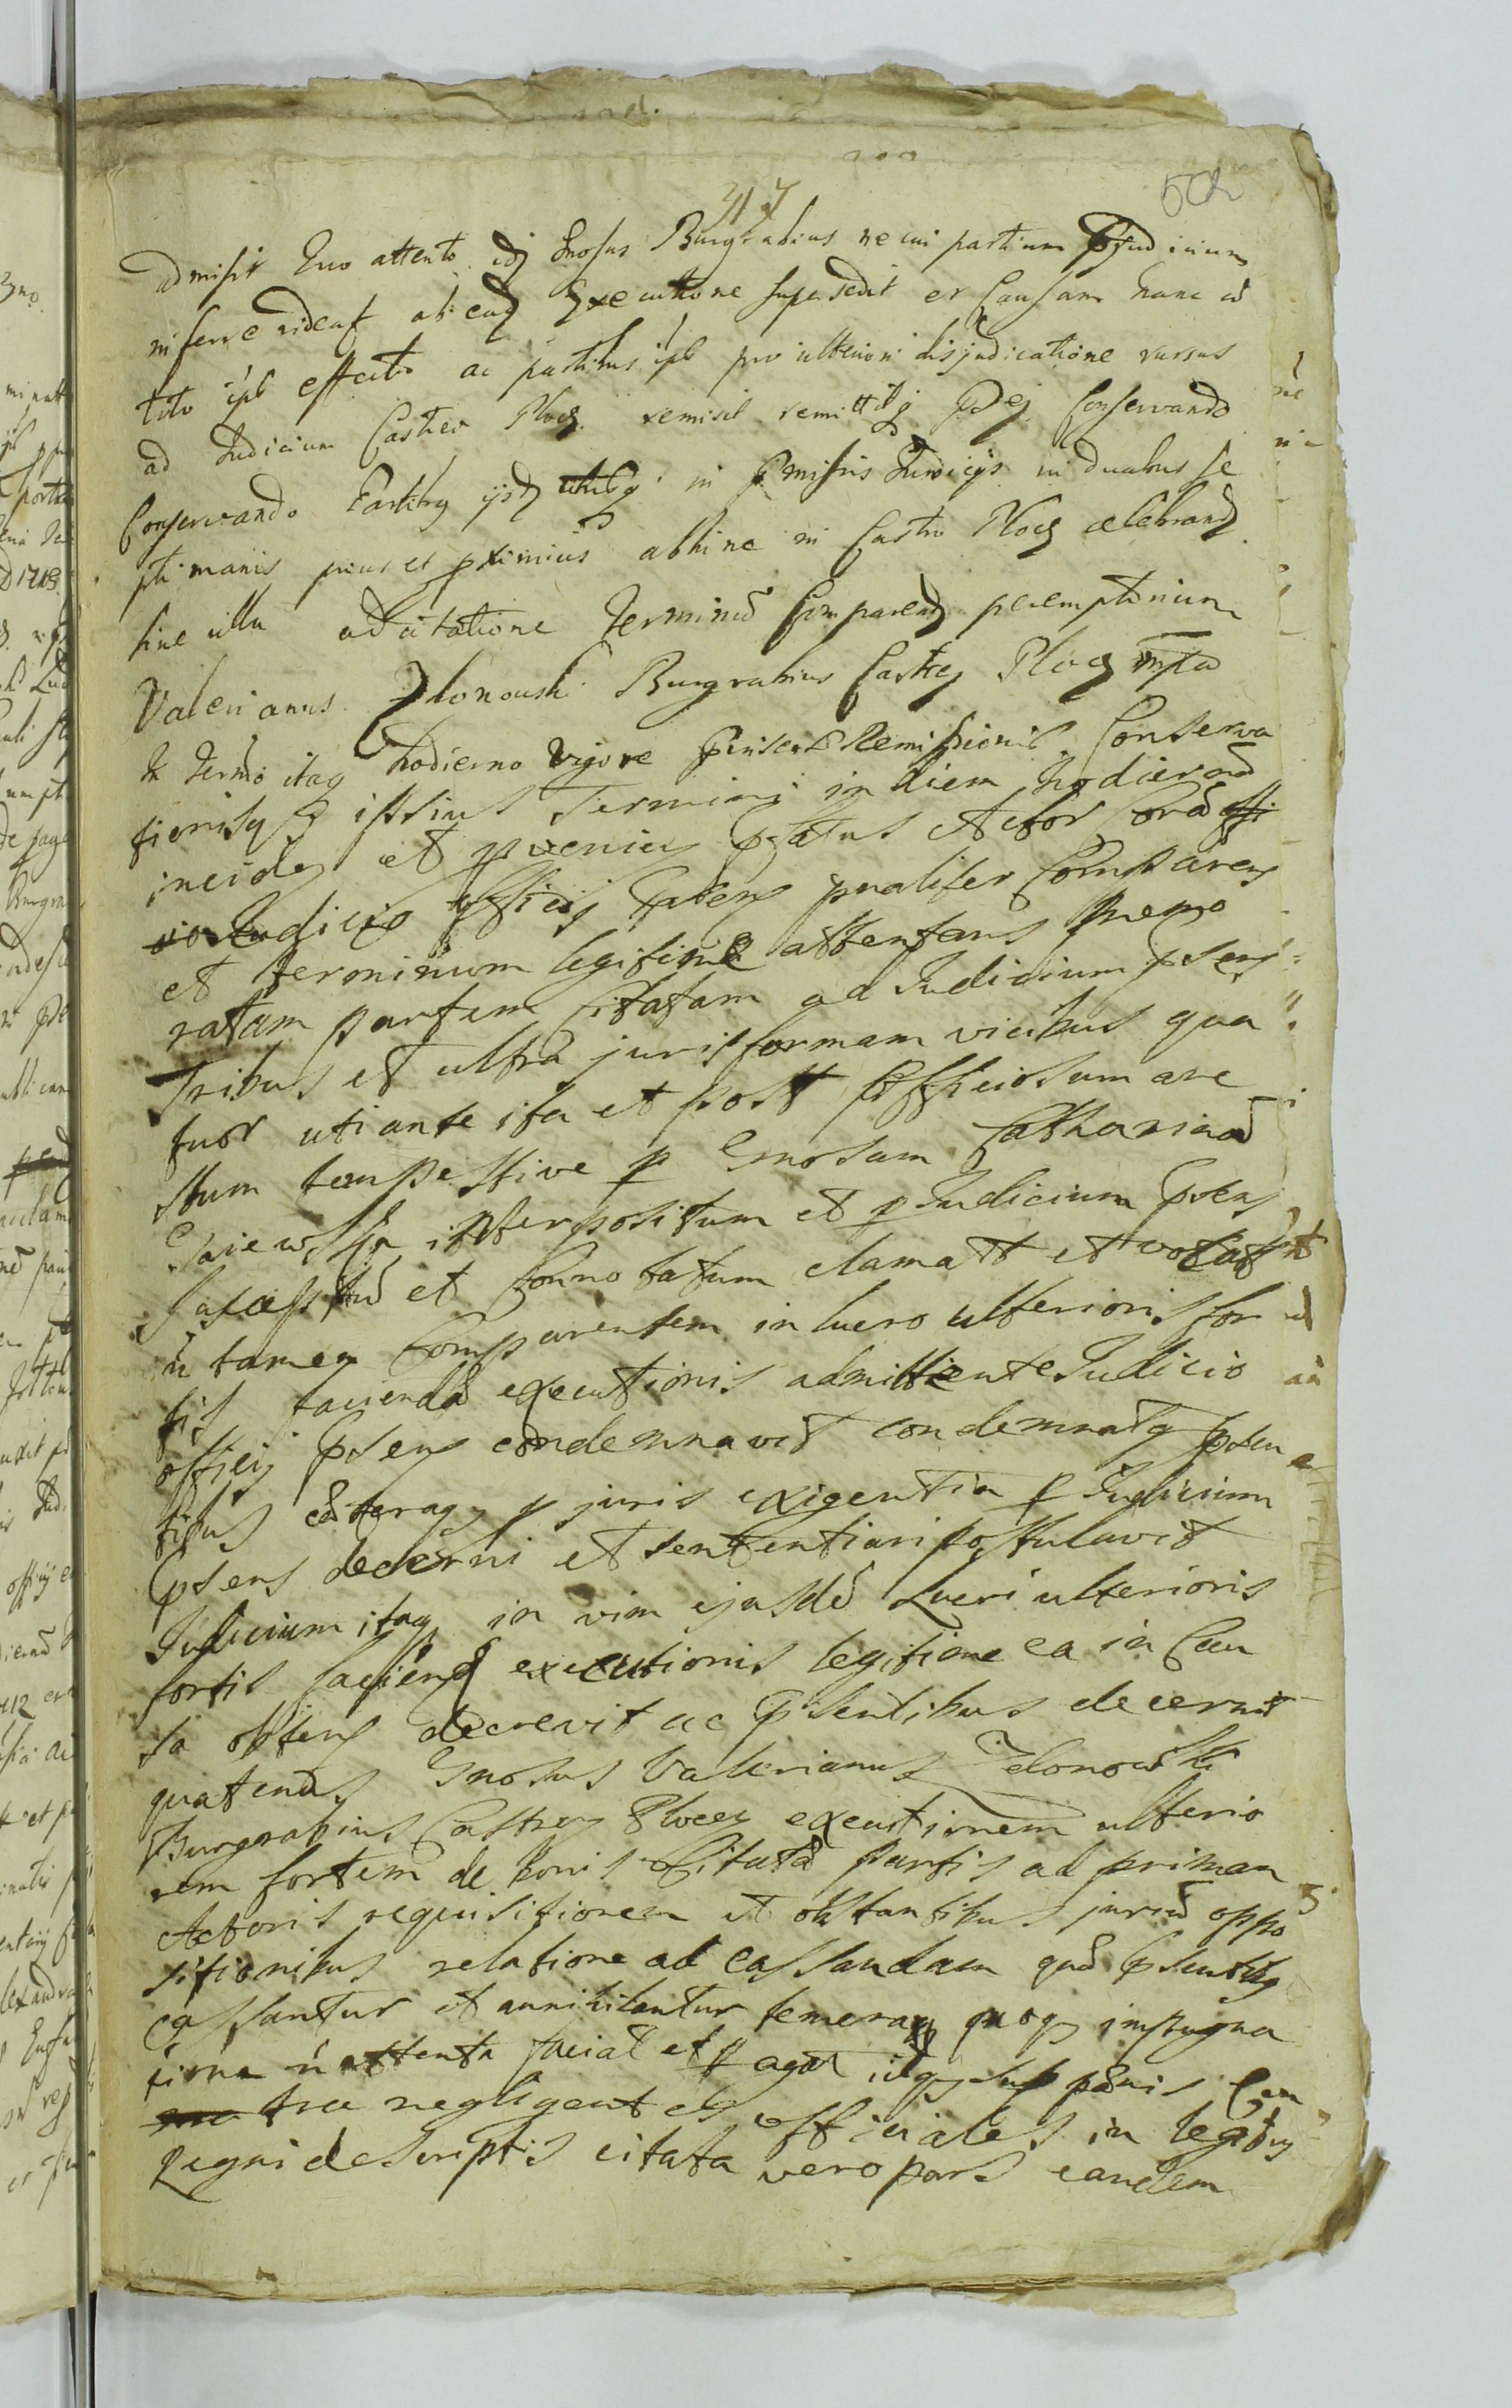 317
502
admisit Quo attento idq Gnosus Burgrabius ne cui partium pjudicium
inferre videat ab eadq Executione supersedit et Causam hanc cũ
toto ipso effectu ac partibus ipso pro ulteriori disjudicatione rursus
ad Judicium Castren Plocq remisit remittitq
Conservando Partibq ijsdq in pmissis Judicijs in duabus se
ptimanis prius et pximius abhinc in Castro Plocq celebrandq
sine ulla adcitatione Terminũ Comparendq peremptorium
Valerianus Zelonouski Burgrabius Castrq Plocq mpa
In Termõ itaq hodierno vigore pinsertæ Remissionis Conserva
tionisq ipsius Termini in diem hodiernũ
inciden et pvenien pfatus Actor Corã
Judicio officij psen pnaliter Comparens
et terminum legitime attentans memo
ratam partem Citatam ad Judicium psens
Tribus et ultra juris formam vicibus qua
tuor uti ante ita et post officiosum are
stum tempestive p Gnosum Catharinã
interpositum et p Judicium psens
suscepstũ et Connotatum clamatt et vocatt
ñ tamen Comparentem in lucro ulterioris for
tis faciendæ executionis admittente Judicio
officij psens condemnavit condemnatq psen
tibus cæteraq p juris exigentia p Judicium
psens decerni et sententiari postulavit
Judicium itaq in vim ejusdẽ Lucri ulterioris
fortis faciend executionis legitime ea in Cau
sa obtens decrevit ac psentibus decernit
quatenus Gnosus Valerianus Zelonowski
Burgrabius Castren Plocen executionem ulterio
rem fortem de bonis Citatæ partis ad primam
Actoris requisitionem ñ obstantibus juriũ oppo
sitionibus relatione ad cassandam quæ psentibq
cassantur et annihilantur temerariaq quoq impugna
tione ñ attenta faciat et pagat idq sub pænis Con
tra negligentes officiales in legibq
Regni descriptis citata vero pars eandem